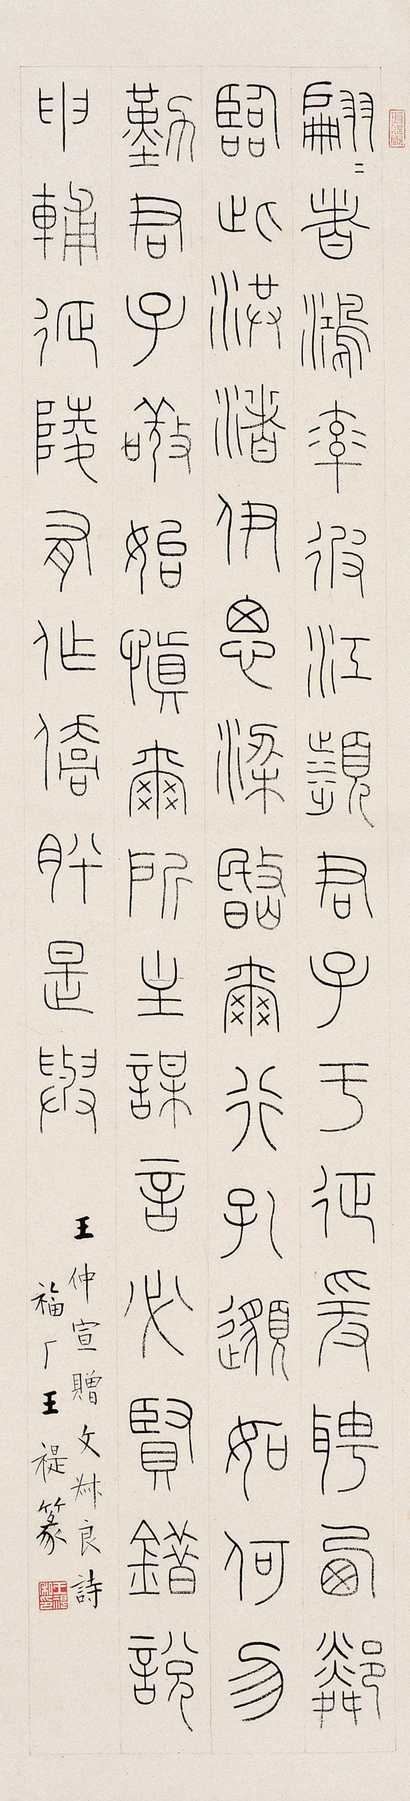 翩〻者鴻率彼江瀕君子于征爰聘西鄰
臨此洪渚伊思梁岷爾行孔邈如何勿
勤君子敬始慎爾所主謀言必賢錯說
申輔延陵有作僑肸是與
王仲宣贈文叔良詩
福厂王禔篆